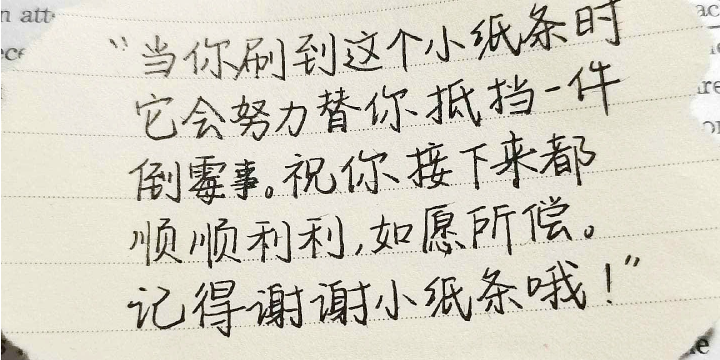 “当你刷到这个小纸条时
它会努力替你抵挡一件
倒霉事。祝你接下来都
顺顺利利,如愿所偿。
记得谢谢小纸条哦！”